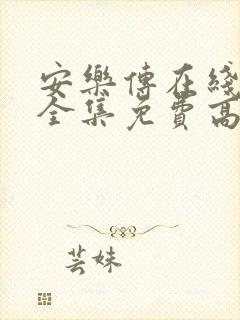 安樂傳在綫
全集免費高
芸妹